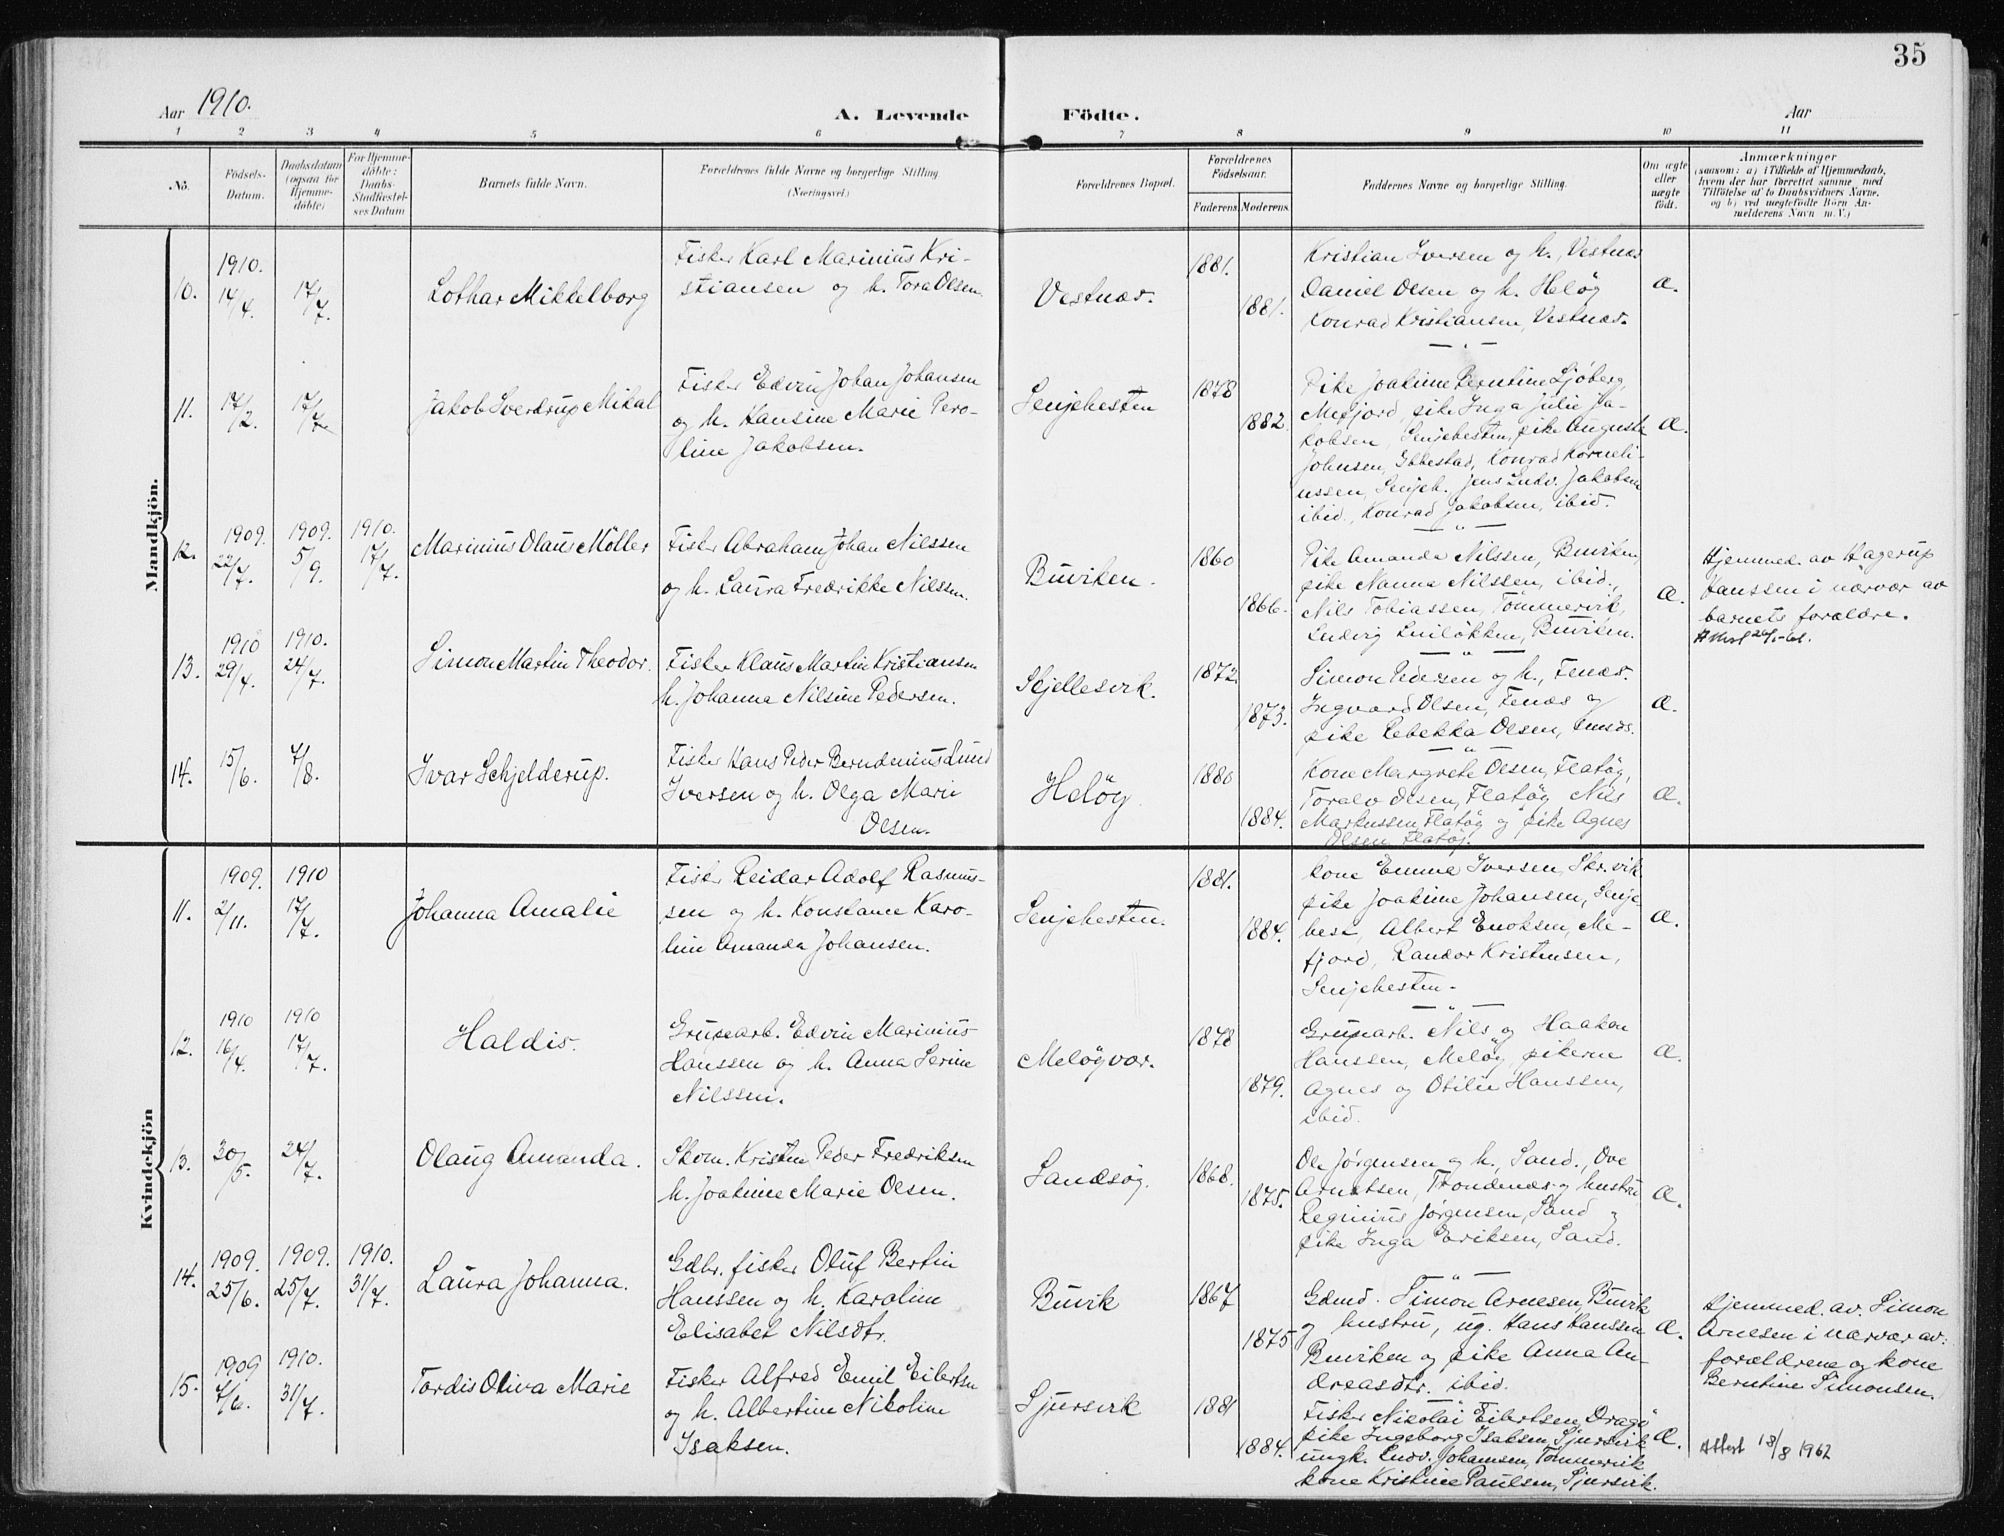 35
Aar 1910.
A. Levende Födte.
Aar
1 2 3 4 5 6 7 8 9 10 11
No.
Födsels-
Datum.
Daabsdatum
(ogsaa for
Hjemme-
döbte)
For Hjemme-
döbte:
Daabs-
Stadfæstel-
ses Datum
Barnets fulde Navn.
Forældrenes fulde Navne og borgerlige Stilling
(Næringsvei.)
Forældrenes Bopæl.
Forældrenes
Födselsaar.
Faderens. Moderens.
Faddernes Navne og borgerlige Stilling.
Om ægte
eller
uægte
födt.
Anmærkninger
(saasom: a) i Tilfælde af Hjemmedaab,
hvem der har forrettet samme, med
Tilföielse af to Daabsvidners Navne,
og b) ved uægtefödte Börn An-
melderens Navn m. V.)
Mandkjön.
10.
1910.
14/4.
17/7.
Lothar Mikkelborg
Fisker Karl Marinius Kri-
stiansen og h. Tora Olsen.
Vestnæs.
1881.
1881.
Kristian Iversen og h., Vestnæs
Daniel Olsen og h. Helöy
Konrad Kristiansen, Vestnæs.
Æ.
11.
17/2.
17/7.
Jakob Sverdrup Mikal
Fisker Edvin Johan Johansen
og h. Hansine Marie Pero-
line Jakobsen.
Senjehesten
1878
1882.
Pike Joakime Berntine Sjöberg,
Mefjord, pike Inga Julie Ja-
kobsen, Senjehesten, pike Auguste
Johnsen, Ibbestad, Konrad Korneli-
ussen, Senjeh. Jens Ludv. Jakobsen
ibid., Konrad Jakobsen, ibid.
Æ.
12.
1909.
22/7.
1909.
5/9.
1910.
17/7.
Marinius Olaus Möller
Fisker Abraham Johan Nilssen
og h. Laura Fredrikke Nilssen.
Buviken.
1860
1866.
Pike Amanda Nilssen, Buviken,
pike Nanna Nilssen, ibid.,
Nils Tobiassen, Tömmervik,
Ludvig Lulökken, Buviken.
Æ.
Hjemmed. av Hagerup
Hanssen i nærvær av
barnets forældre.
13.
1910
29/4.
1910.
24/7.
Simon Martin Theodor.
Fisker Klaus Martin Kristiansen
h. Johanna Nilsine Pedersen.
Skjellesvik.
1872.
1873.
Simon Pedersen og h., Fenæs.
Ingvard Olsen, Fenæs og
pike Rebekka Olsen,
Æ.
14.
15/6.
7/8.
Ivar Schjelderup.
Fisker Hans Peder Berndenius Lund
Iversen og h. Olga Marie
Olsen.
Helöy
1880
1884.
Kone Margrete Olsen, Flatöy,
Toralv Olsen, Flatöy Nils
Markussen, Flatöy og pike Agnes
Olsen, Flatöy.
Æ.
Kvindekjön
11.
1909.
2/11.
1910
17/7.
Johanna Amalie
Fisker Reidar Adolf Rasmus-
sen og h. Konstance Karo-
line Amanda Johansen.
Senjehesten.
1881.
1884.
kone Emma Iversen, Skr.vik
pike Joakime Johansen, Senje
hest, Albert Enoksen, Me-
fjord, Randor Kristensen,
Senjehesten.
Æ.
12.
1910
16/4.
1910
17/7.
Haldis.
Grubearb. Edvin Marinius
Hanssen og h. Anna Serine
Nilssen.
Melöyvær.
1878
1879.
Grubearb. Nils og Haakon
Hanssen, Melöy, pikerne
Agnes og Otilie Hanssen,
ibid.
Æ.
13.
30/5.
24/7.
Olaug Amanda.
Skom. Kristen Peder Fredriksen
h. Joakime Marie Olsen.
Sandsöy.
1868.
1875.
Ole Jörgensen og h., Sand., Ove
Arnetsen, Trondenæs og hustru,
Reginius Jørgensen, Sand og
pike Inga Eriksen, Sand.
Æ.
14.
1909.
25/6.
1909.
25/7.
1910.
31/7.
Laura Johanna.
Gdbr. fisker Oluf Bertin
Hanssen og h. Karoline
Elisabet Nilsdtr.
Buvik
1867
1875
Gdmd. Simon Arnesen, Buvik
og hustru, ug. Hans Hanssen
Buviken og pike Anna An-
dreasdtr. ibid.
Æ.
Hjemmed. av. Simon
Arnesen i nærvær av:
forældrene og kone
Berntine Simonsen.
15.
1909
7/6.
1910.
31/7.
Tordis Oliva Marie
Fisker Alfred Emil Eilertsen
og h. Albertine Nikoline
Isaksen.
Sjursvik
1881
1884.
Fisker Nikolai Eilertsen, Dragö
pike Ingeborg Isaksen, Sjursvik
ungk. Ludv. Johansen, Tömmervik
kone Kristine Paulsen, Sjursvik.
Æ.
Attest 18/8 1962